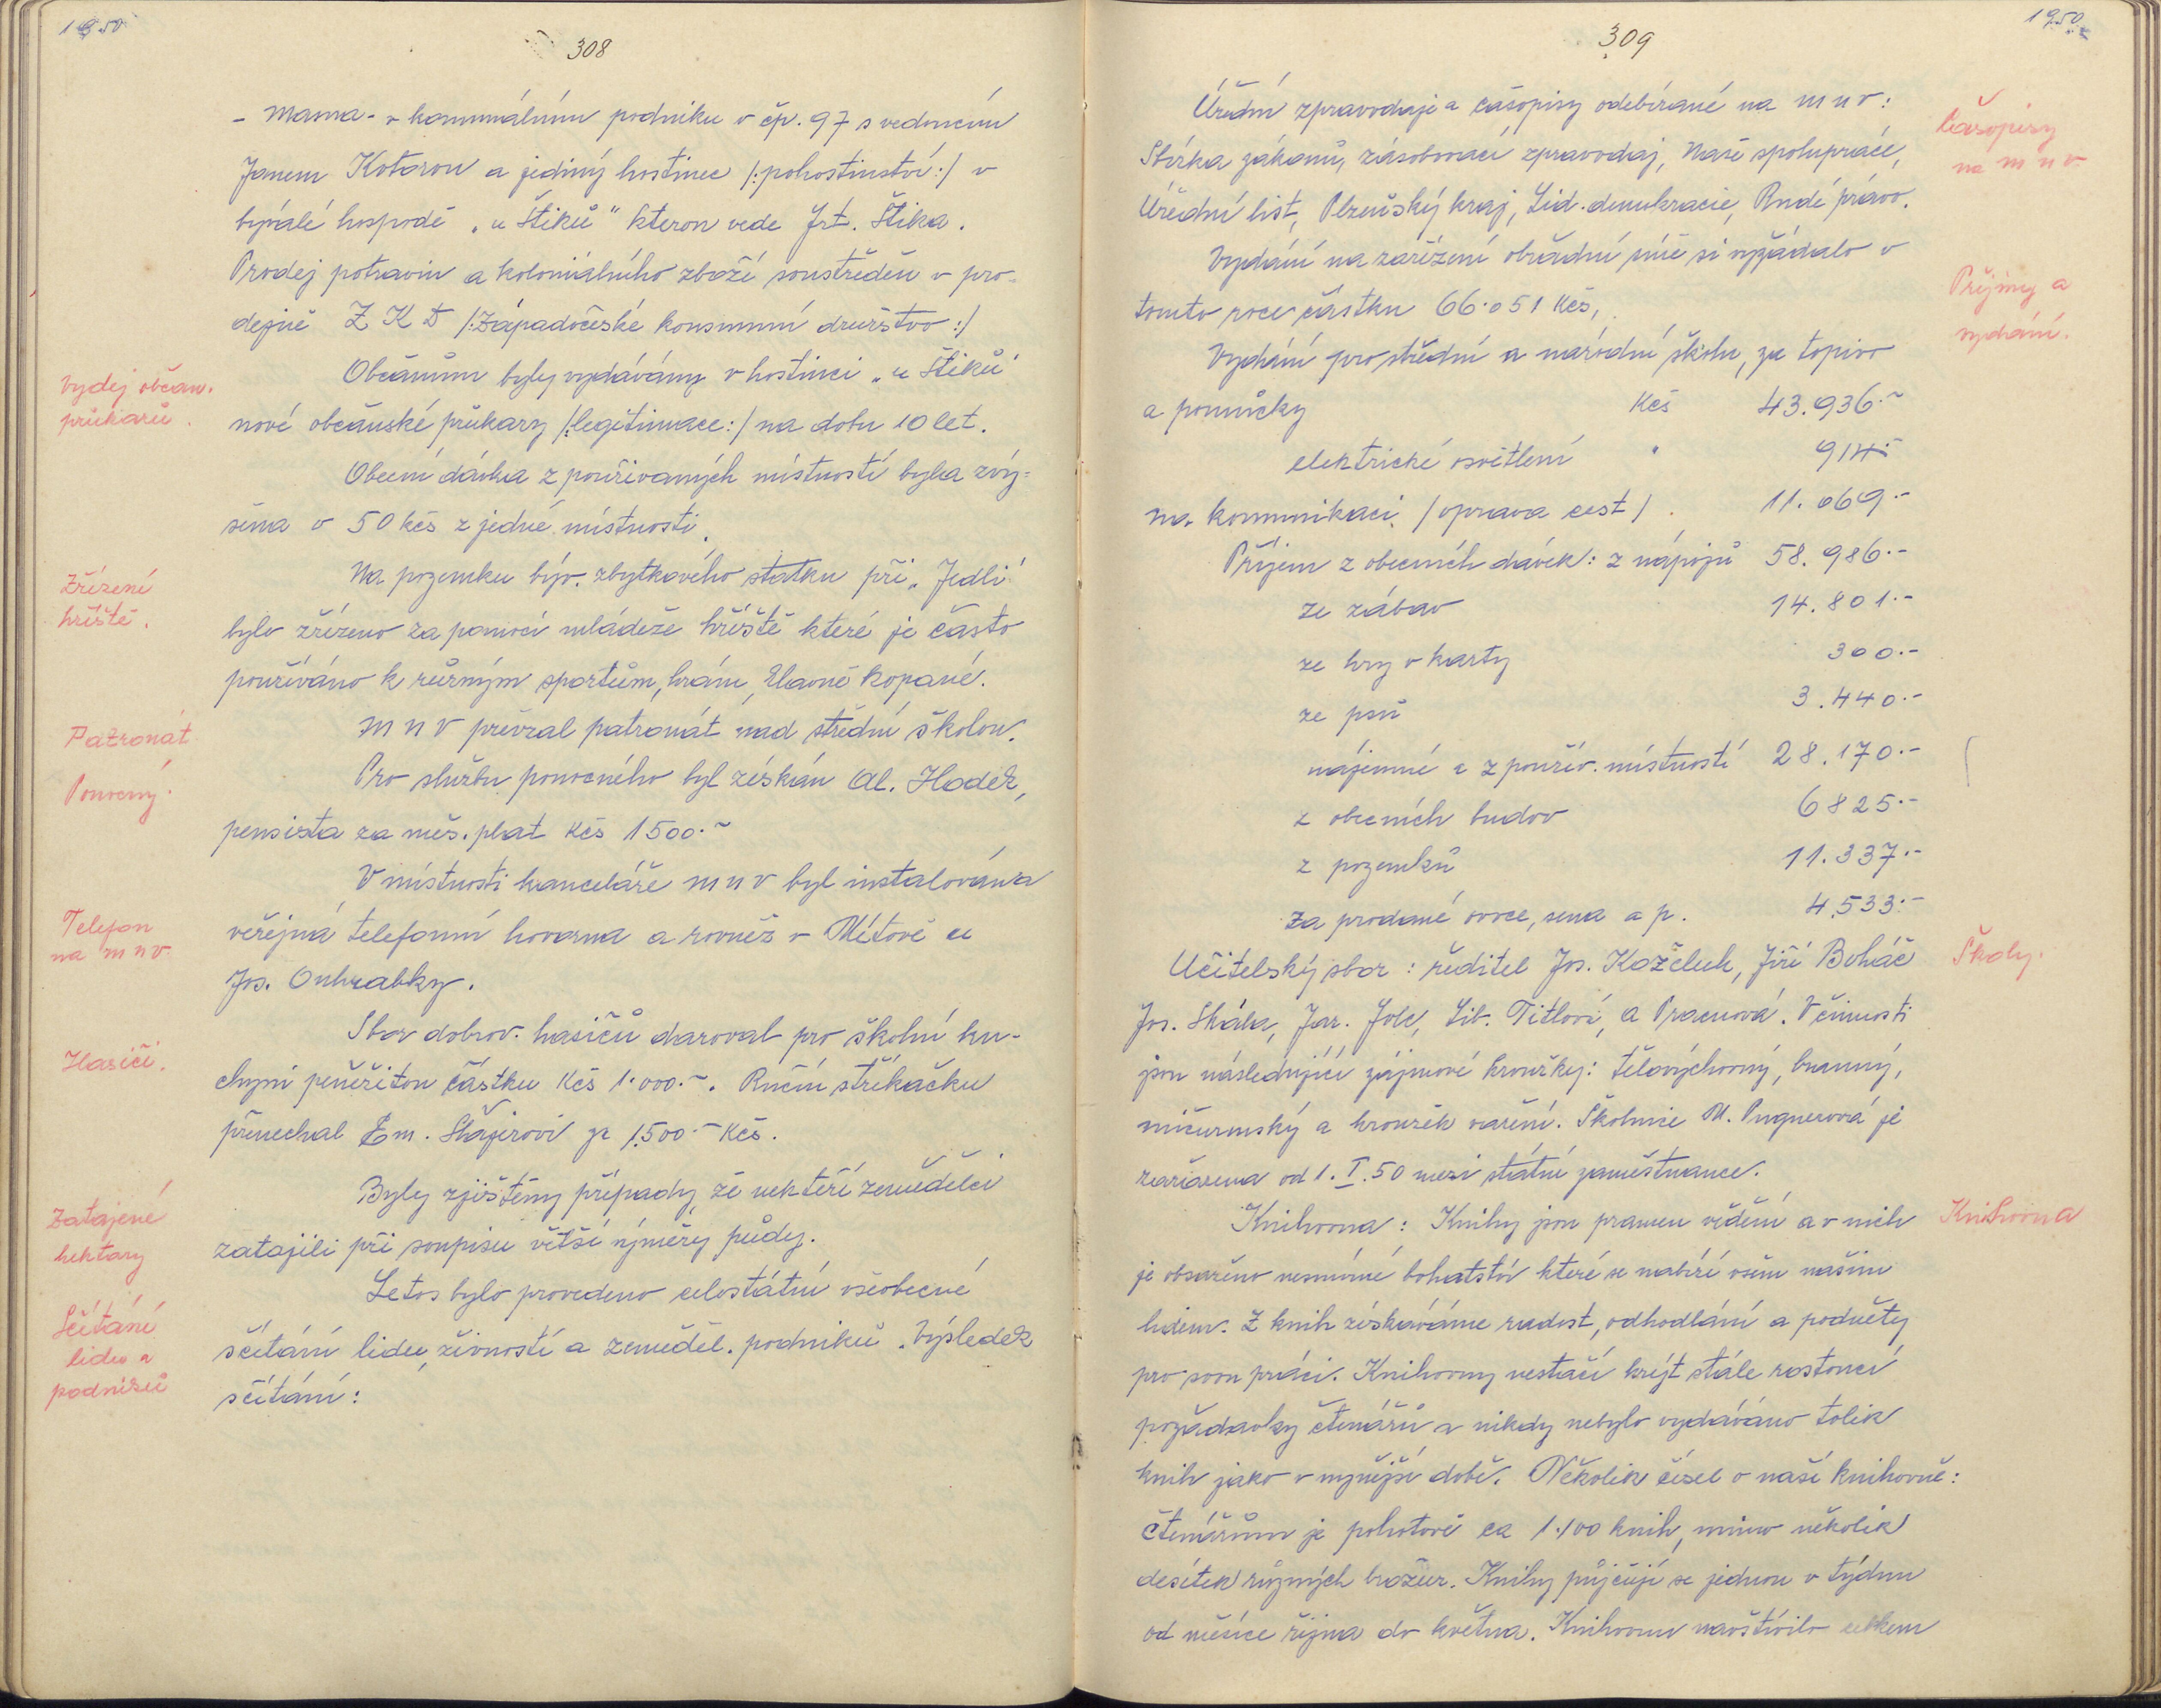 1950
308
- Masna - v komunálním podniku v čp. 97 s vedoucím
Janem Kotorou a jediný hostinec /:pohostinství:/ v
bývalé hospodě „u Štiků" kterou vede Frt. Štika.
Prodej potravin a koloniálního zboží soustředěn v pro-
dejně Z K D /:Západočeské konsumní družstvo:/
Občanům byly vydávány v hostinci „u Štiků"
nové občanské průkazy /:legitimace:/ na dobu 10 let.
Obecní dávka z používaných místností byla zvý-
šena o 50 kčs z jedné místnosti.
Na pozemku býv. zbytkového statku při „Jedli"
bylo zřízeno za pomoci mládeže hřiště které je často
používáno k různým sportům, hrám, hlavně kopané.
M N V převzal patronát nad střední školou.
Pro službu ponocného byl získán Al. Hodek,
pensista za měs. plat Kčs 1500.-
V místnosti kanceláře M N V byl instalována
veřejná telefonní hovorna a rovněž v Mítově u
Jos. Ouhrabky.
Sbor dobrov. hasičů daroval pro školní ku-
chyni peněžitou částku Kčs 1.000.-. Ruční stříkačku
přenechal Em. Šlajerovi za 1.500.- Kčs.
Byly zjištěny případy, že někteří zemědělci
zatajili při soupisu větší výměry půdy.
Letos bylo provedeno celostátní všeobecné
sčítání lidu, živností a zeměděl. podniků. Výsledek
sčítání:
Výdej občan.
průkazů.
Zřízení
hřiště.
Patronát
Ponocný.
Telefon
na M N V.
Hasiči.
Zatajené
hektary
Sčítání
lidu a
podniků
1950
309
Úřední zpravodaje a časopisy odebírané na M N V:
Sbírka zákonů, zásobovací zpravodaj, Naše spolupráce,
Úřední list, Plzeňský kraj, Lid. demokracie, Rudé právo.
Vydání na zařízení obřadní síně si vyžádalo v
tomto roce částku 66.051 Kčs,
Vydání pro střední a národní školu, za topivo
a pomůcky Kčs 43.936.-
elektrické osvětlení " 914.-
na komunikaci /oprava cest/ 11.069.-
Příjem z obecních dávek: z nápojů 58.986.-
ze zábav 14.801.-
ze hry v karty 300.-
ze psů 3.440.-
nájemné a z použív. místností 28.170.-
z obecních budov 6825.-
z pozemků 11.337.-
za prodané ovoce, sena a p. 4.533.-
Učitelský sbor: ředitel Jos. Koželuh, Jiří Boháč
Jos. Skála, Jar. Jole, Lib. Titlová, a Pracnová. V činnosti
jsou následující zájmové kroužky: tělovýchovný, branný,
mičurinský a kroužek vaření. Školnice M. Pugnerová je
zařazena od 1. I. 50 mezi státní zaměstnance.
Knihovna: Knihy jsou pramen vědění a v nich
je obsaženo nesmírné bohatství které se nabízí všem našim
lidem. Z knih získáváme radost, odhodlání a podněty
pro svou práci. Knihovny nestačí krýt stále rostoucí
požadavky čtenářů a nikdy nebylo vydáváno tolik
knih jako v nynější době. Několik čísel o naší knihovně:
Čtenářům je pohotově ca 1.100 knih, mimo několik
desítek různých brožur. Knihy půjčují se jednou v týdnu
od měsíce října do května. Knihovnu navštívilo celkem
Časopisy
na M N V
Příjmy a
vydání.
Školy.
Knihovna